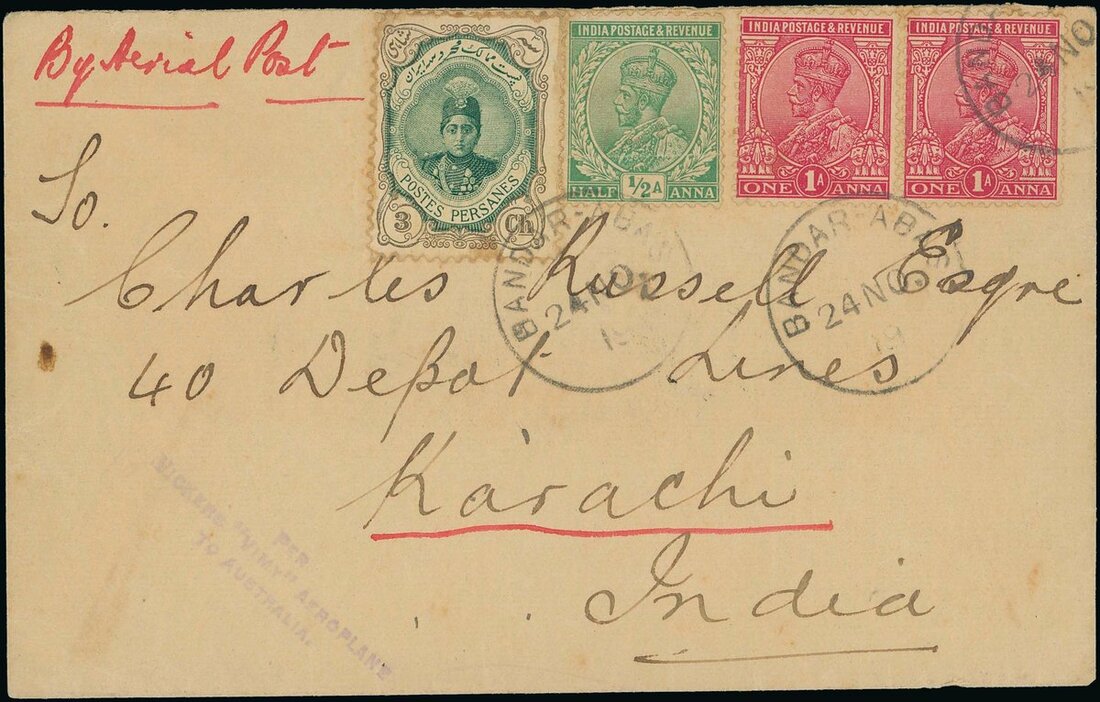 By Aerial Post
پست ممالک محروسه ایران
POSTES PERSANES
3 Ch
INDIA POSTAGE & REVENUE
HALF 1/2A ANNA
INDIA POSTAGE & REVENUE
ONE 1A ANNA
INDIA POSTAGE & REVENUE
ONE 1A ANNA
24 NO
BANDAR-ABAS
24 NO.
BANDAR-ABAS
24 NO.
19
So.
Charles Russell Esqre
40 Depot Lines
Karachi
India
PER
VICKERS "VIMY" AEROPLANE
TO AUSTRALIA